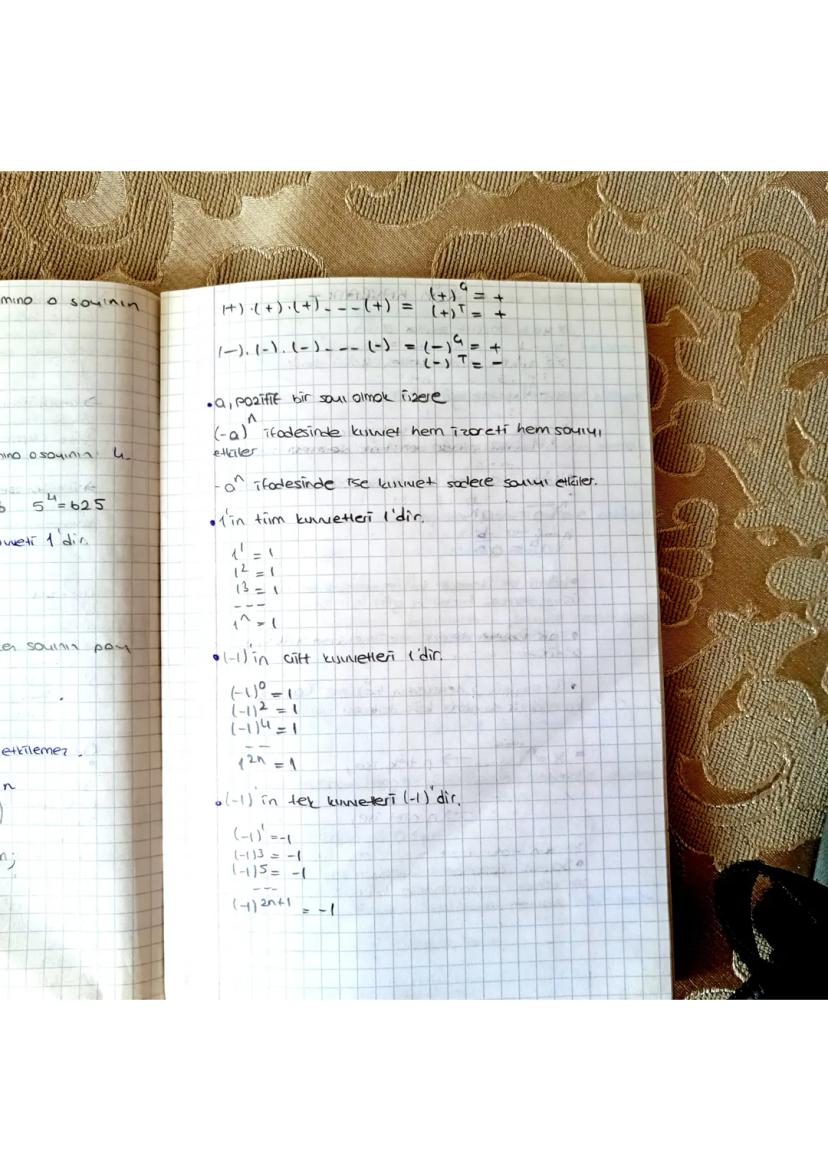 o sayının
o sayının 4.
5⁴=625
1'dir.
sayının pay
etkilemez.
n
)
n;
(+).(+).(+)----(+) = (+)^Ç = +
(+)^T = +
(-).(-).(-)----(-) = (-)^Ç = +
(-)^T = -
• a, pozitif bir sayı olmak üzere
(-a)ⁿ ifadesinde kuvvet hem işareti hem sayıyı
etkiler
-aⁿ ifadesinde ise kuvvet sadece sayıyı etkiler.
• 1'in tüm kuvvetleri 1'dir.
1¹ = 1
1² = 1
1³ = 1
---
1ⁿ = 1
• (-1)'in çift kuvvetleri 1'dir.
(-1)⁰ = 1
(-1)² = 1
(-1)⁴ = 1
--
1²ⁿ = 1
• (-1)'in tek kuvvetleri (-1)'dir.
(-1)¹ = -1
(-1)³ = -1
(-1)⁵ = -1
---
(-1)²ⁿ⁺¹ = -1